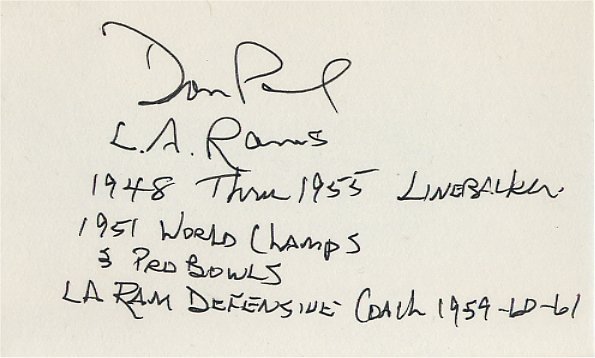 Don Paul
L.A. Rams
1948 Thru 1955 LINEBACKER
1951 WORLD CHAMPS
3 PRO BOWLS
LA RAM DEFENSIVE COACH 1959-60-61